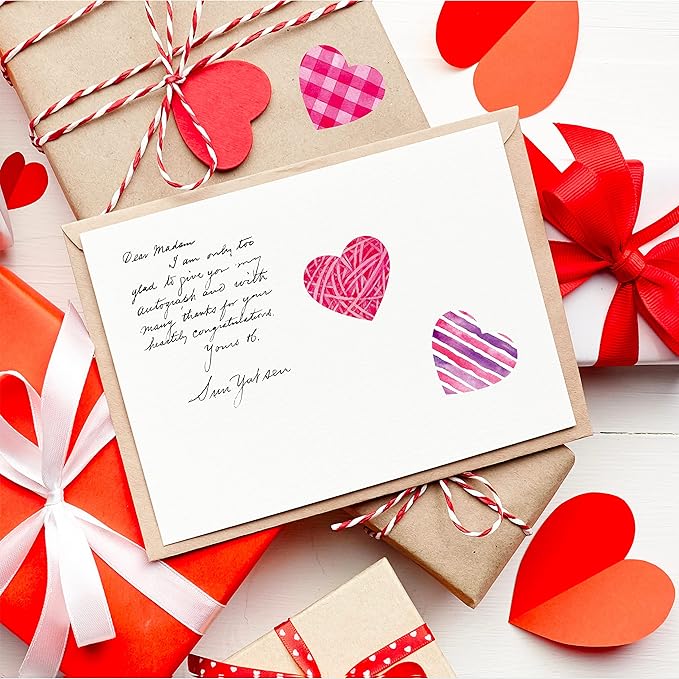 Dear Madam
I am only too
glad to give you my
autograph and with
many thanks for your
heartily congratulations.
Yours tr.
Sun Yat sen